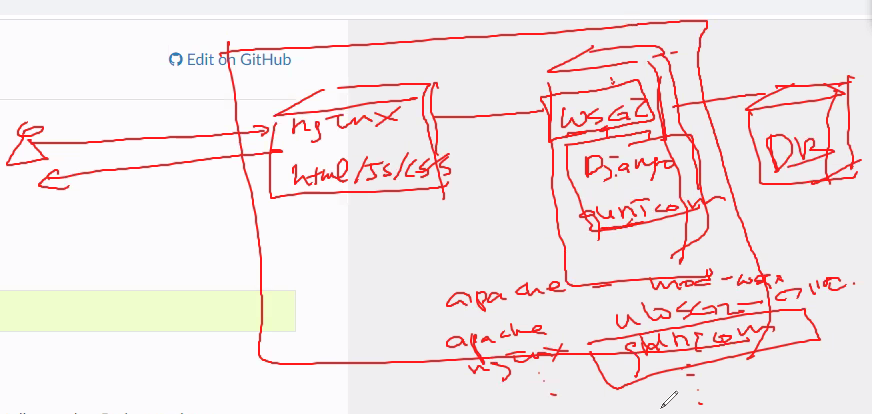 Edit on GitHub
nginx
html/JS/CSS
WSGI
Django
gunicorn
DB
apache - mod-wsgi
apache
nginx
gunicorn